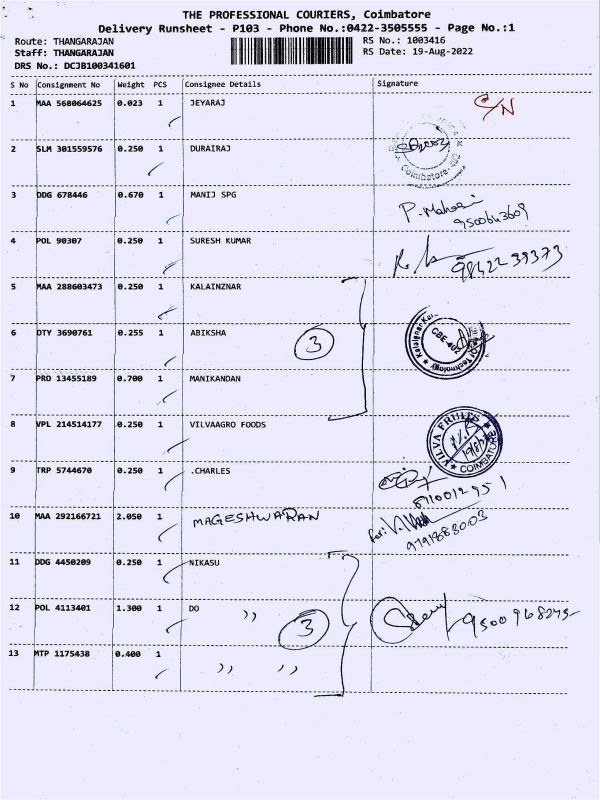 THE PROFESSIONAL COURIERS, Coimbatore
Delivery Runsheet - P103 - Phone No.:0422-3505555 - Page No.:1
Route: THANGARAJAN RS No.: 1003416
Staff: THANGARAJAN RS Date: 19-Aug-2022
DRS No.: DCJB100341601
S No Consignment No Weight PCS Consignee Details Signature
1 MAA 568064625 0.023 1 JEYARAJ
2 SLM 301559576 0.250 1 DURAIRAJ
Coimbatore
3 DDG 678446 0.670 1 MANIJ SPG P. Mahesi
9500643609
4 POL 90307 0.250 1 SURESH KUMAR 98422 39373
5 MAA 288603473 0.250 1 KALAINZNAR
6 DTY 3690761 0.255 1 ABIKSHA 3 CBE-402
Technology
7 PRO 13455189 0.700 1 MANIKANDAN
8 VPL 214514177 0.250 1 VILVAAGRO FOODS VILVA FRUITS COIMBATORE
9 TRP 5744670 0.250 1 .CHARLES
10 MAA 292166721 2.050 1 MAGESHWARAN
11 DDG 4450209 0.250 1 NIKASU
12 POL 4113401 1.300 1 DO ,, 3
13 MTP 1175438 0.400 1 ,, ,,